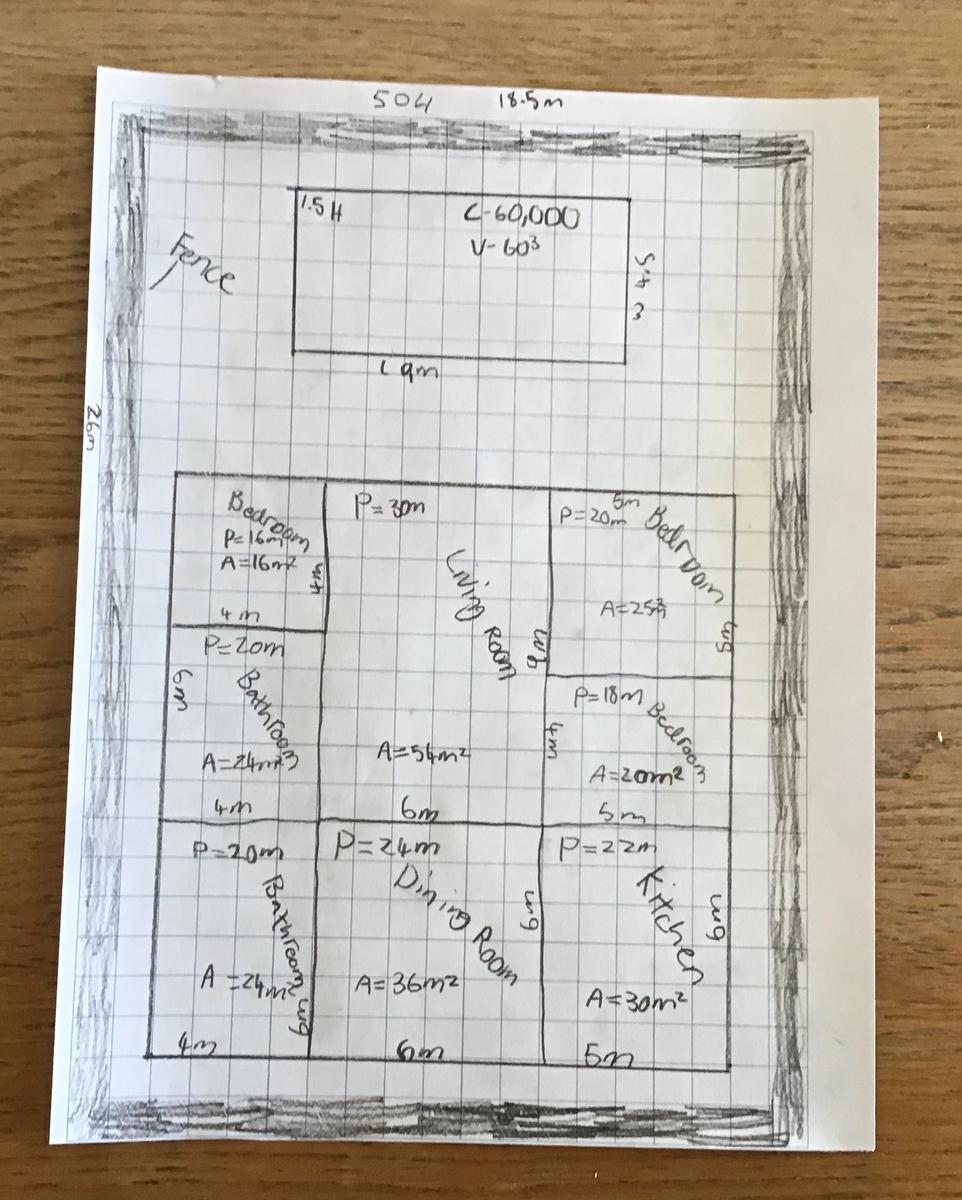 504 18.5m
1.5H
C-60,000
V-60³
Fence
4.5
9m
26m
Bedroom
P=16m
A=16m²
4m
4m
P=30m
Living Room
9m
A=54m²
6m
5m
P=20m
Bedroom
A=25m²
5m
P=20m
6m
Bathroom
A=24m²
4m
P=18m
Bedroom
4m
A=20m²
5m
P=20m
Bathroom
A=24m²
6m
4m
P=24m
Dining Room
6m
A=36m²
6m
P=22m
Kitchen
6m
A=30m²
5m